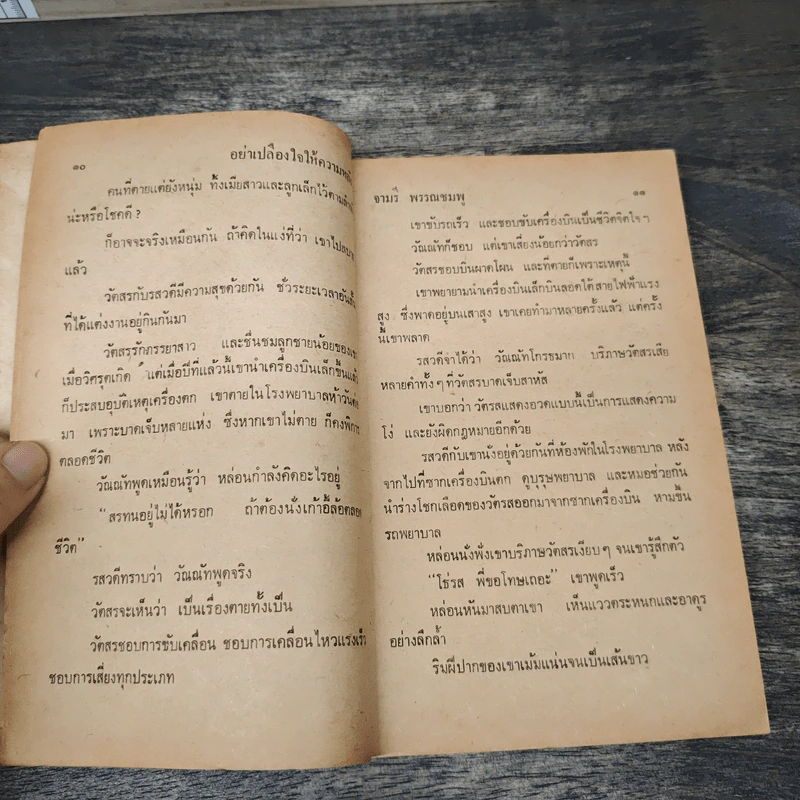 ๑๐ อย่าเปลืองใจให้ความหลัง
คนที่ตายแต่ยังหนุ่ม ทั้งเมียสาวและลูกเล็กไว้ตามลำพัง
น่ะหรือโชคดี ?
ก็อาจจะจริงเหมือนกัน ถ้าคิดในแง่ที่ว่า เขาไปสบาย
แล้ว
วัตสรกับรสวดีมีความสุขด้วยกัน ชั่วระยะเวลาอันสั้น
ที่ได้แต่งงานอยู่กินกันมา
วัตสรรักภรรยาสาว และชื่นชมลูกชายน้อยของเขา
เมื่อวิศรุตเกิด แต่เมื่อปีที่แล้วนี้เขานำเครื่องบินเล็กขึ้นแล้ว
ก็ประสบอุบัติเหตุเครื่องตก เขาตายในโรงพยาบาลห้าวันต่อ
มา เพราะบาดเจ็บหลายแห่ง ซึ่งหากเขาไม่ตาย ก็คงพิการ
ตลอดชีวิต
วัณณัทพูดเหมือนรู้ว่า หล่อนกำลังคิดอะไรอยู่
“สรทนอยู่ไม่ได้หรอก ถ้าต้องนั่งเก้าอี้ล้อตลอด
ชีวิต”
รสวดีทราบว่า วัณณัทพูดจริง
วัตสรจะเห็นว่า เป็นเรื่องตายทั้งเป็น
วัตสรชอบการขับเคลื่อน ชอบการเคลื่อนไหวแรงเร็ว
ชอบการเสี่ยงทุกประเภท
จามรี พรรณชมพู ๑๑
เขาขับรถเร็ว และชอบขับเครื่องบินเป็นชีวิตจิตใจ ๆ
วัณณัทก็ชอบ แต่เขาเสี่ยงน้อยกว่าวัตสร
วัตสรชอบบินผาดโผน และที่ตายก็เพราะเหตุนี้
เขาพยายามนำเครื่องบินเล็กบินลอดใต้สายไฟฟ้าแรง
สูง ซึ่งพาดอยู่บนเสาสูง เขาเคยทำมาหลายครั้งแล้ว แต่ครั้ง
นี้เขาพลาด
รสวดีจำได้ว่า วัณณัทโกรธมาก บริภาษวัตสรเสีย
หลายคำทั้ง ๆ ที่วัตสรบาดเจ็บสาหัส
เขาบอกว่า วัตรสแสดงอวดแบบนี้เป็นการแสดงความ
โง่ และยังผิดกฎหมายอีกด้วย
รสวดีกับเขานั่งอยู่ด้วยกันที่ห้องพักในโรงพยาบาล หลัง
จากไปที่ซากเครื่องบินตก ดูบุรุษพยาบาล และหมอช่วยกัน
นำร่างโชกเลือดของวัตรสออกมาจากซากเครื่องบิน หามขึ้น
รถพยาบาล
หล่อนนั่งฟังเขาบริภาษวัตสรเงียบ ๆ จนเขารู้สึกตัว
“โธ่รส พี่ขอโทษเถอะ” เขาพูดเร็ว
หล่อนหันมาสบตาเขา เห็นแววตระหนกและอาดูร
อย่างลึกล้ำ
ริมฝีปากของเขาเม้มแน่นจนเป็นเส้นขาว